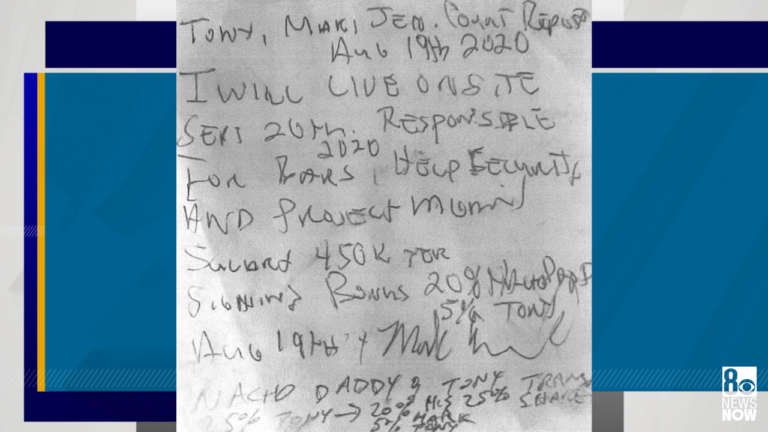 TONY, MARK, JEN. Count Report
AUG 19th 2020
I WILL LIVE ONSITE
SEPT 20th. RESPONSIBLE
2020
FOR BARS, HELP SECURITY
AND PROJECT
450K
SIGNING BONUS 20%
5% TONY
AUG 19th Mark
NACHO DADDY & TONY TRANS
25% TONY → 20% HIS 25% SHARE
5% MARK
TONY
8
NEWS
NOW